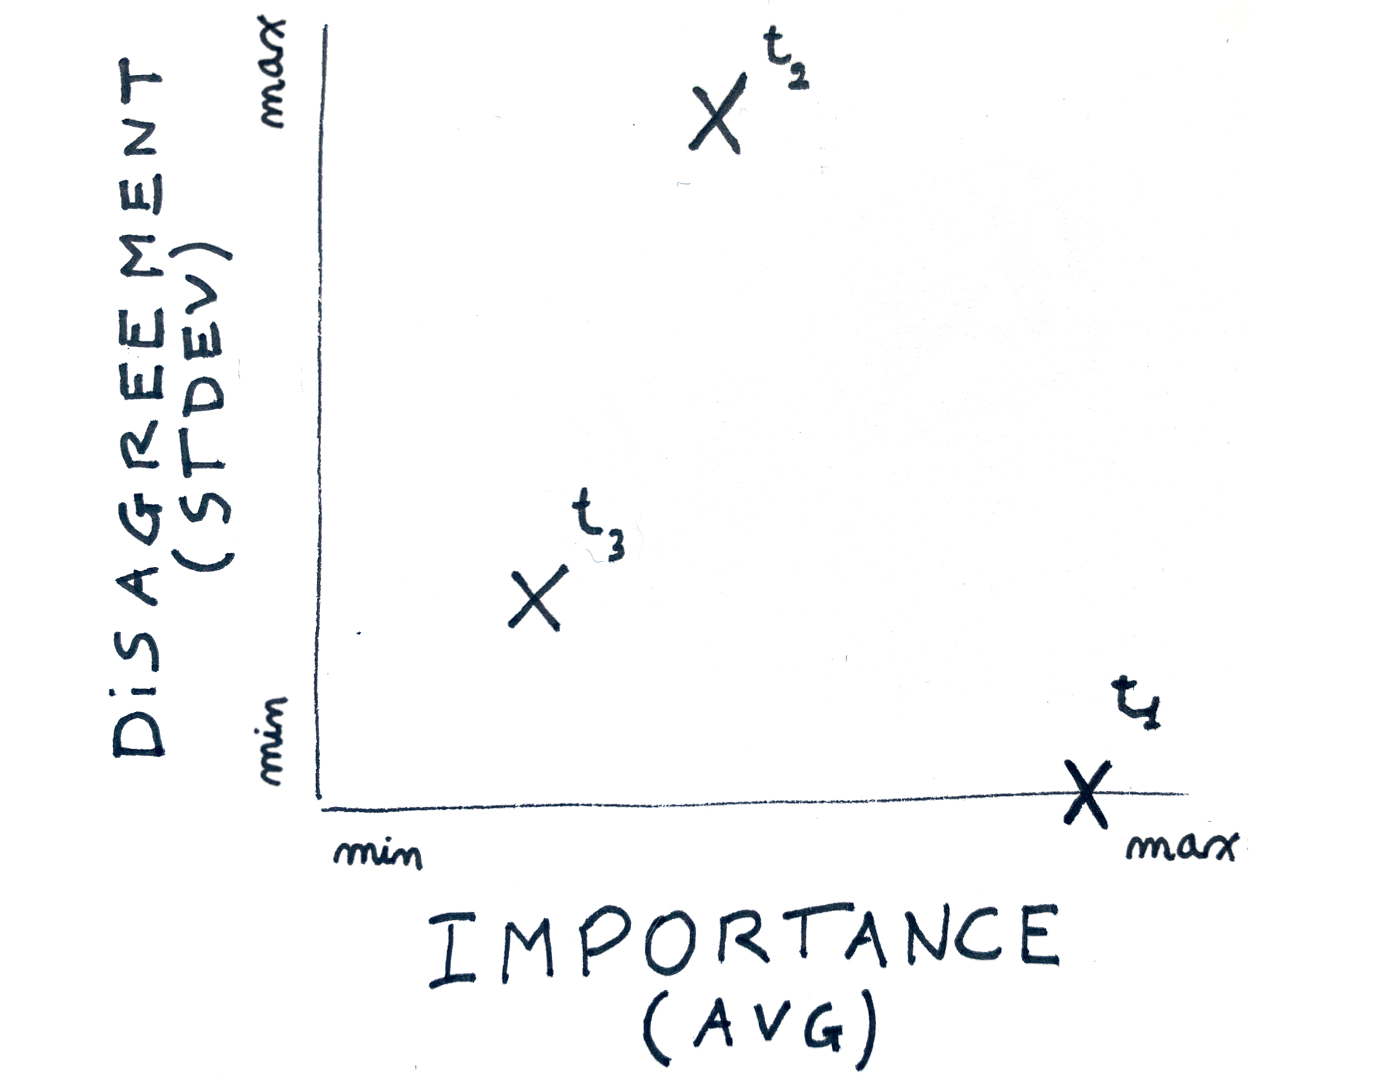 DiSAGREEMENT
(STDEV)
max
min
t2
t3
t1
min
max
IMPORTANCE
(AVG)